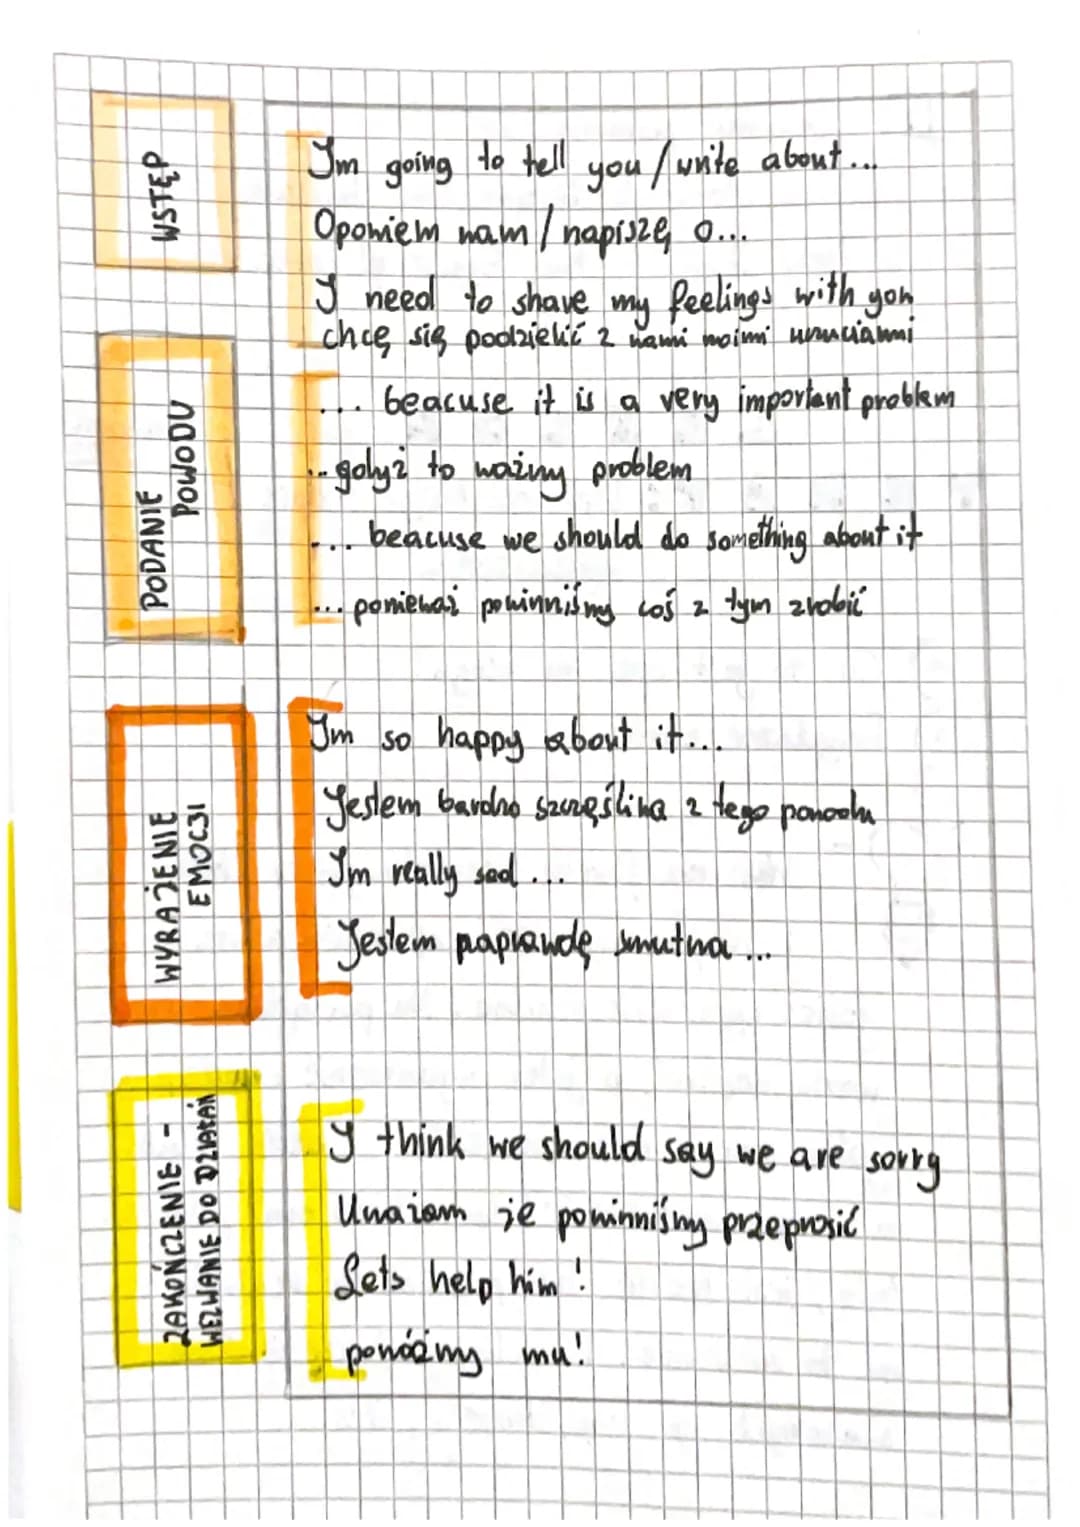 WSTĘP
Im going to tell you / write about...
Opowiem wam / napiszę o...
I need to share my feelings with you
chcę się podzielić z wami moimi uczuciami
PODANIE
POWODU
... beacuse it is a very important problem
... gdyż to ważny problem
... beacuse we should do something about it
... ponieważ powinniśmy coś z tym zrobić
WYRAŻENIE
EMOCJI
Im so happy about it...
Jestem bardzo szczęśliwa z tego powodu
Im really sad ...
Jestem naprawdę smutna ...
ZAKOŃCZENIE -
WEZWANIE DO DZIAŁAŃ
I think we should say we are sorry
Uważam że powinniśmy przeprosić
Lets help him!
pomóżmy mu!